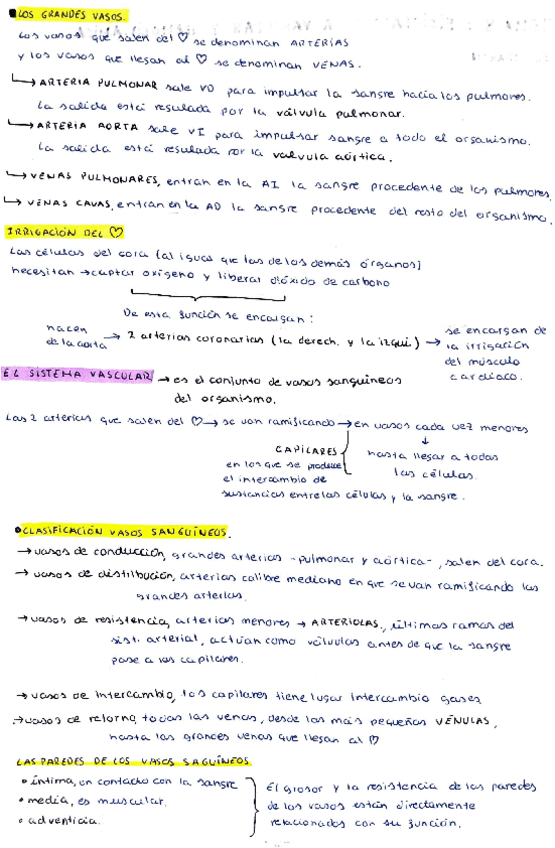 • LOS GRANDES VASOS.
Los vasos que salen del ♡ se denominan ARTERIAS
y los vasos que llegan al ♡ se denominan VENAS.
↳ ARTERIA PULMONAR sale VD para impulsar la sangre hacia los pulmones.
La salida está regulada por la válvula pulmonar.
↳ ARTERIA AORTA sale VI para impulsar sangre a todo el organismo.
La salida está regulada por la valvula aórtica.
↳ VENAS PULMONARES, entran en la AI la sangre procedente de los pulmones,
↳ VENAS CAVAS, entran en la AD la sangre procedente del resto del organismo.
IRRIGACIÓN DEL ♡
Las células del cora (al igual que las de los demás órganos)
necesitan → captar oxígeno y liberar dióxido de carbono
De esta función se encargan:
nacen de la aorta → 2 arterias coronarias (la derech. y la izqui.) → se encargan de
la irrigación
del músculo
cardíaco.
EL SISTEMA VASCULAR → es el conjunto de vasos sanguíneos
del organismo.
Las 2 arterias que salen del ♡ → se van ramificando → en vasos cada vez menores
↓
hasta llegar a todas
las células.
CAPILARES
en los que se produce
el intercambio de
sustancias entre las células y la sangre.
• CLASIFICACIÓN VASOS SANGUÍNEOS.
→ vasos de conducción, grandes arterias - pulmonar y aórtica -, salen del cora.
→ vasos de distribución, arterias calibre mediano en que se van ramificando las
grandes arterias.
→ vasos de resistencia, arterias menores → ARTERIOLAS, últimas ramas del
sist. arterial, actúan como válvulas antes de que la sangre
pase a los capilares.
→ vasos de intercambio, los capilares tiene lugar intercambio gases
→ vasos de retorno, todas las venas, desde las más pequeñas VÉNULAS,
hasta las grandes venas que llegan al ♡
LAS PAREDES DE LOS VASOS SAGUÍNEOS
• íntima, en contacto con la sangre
• media, es muscular.
• adventicia.
El grosor y la resistencia de las paredes
de los vasos están directamente
relacionados con su función.